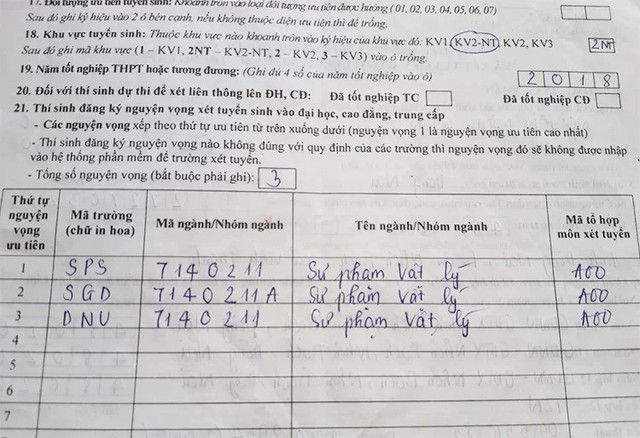 17. Đối tượng ưu tiên tuyển sinh: Khoanh tròn vào loại đối tượng ưu tiên được hưởng (01, 02, 03, 04, 05, 06, 07)
Sau đó ghi ký hiệu vào 2 ô bên cạnh, nếu không thuộc diện ưu tiên thì để trống.
18. Khu vực tuyển sinh: Thuộc khu vực nào khoanh tròn vào ký hiệu của khu vực đó: KV1, KV2-NT, KV2, KV3
Sau đó ghi mã khu vực (1 – KV1, 2NT – KV2-NT, 2 – KV2, 3 – KV3) vào ô trống. 2NT
19. Năm tốt nghiệp THPT hoặc tương đương: (Ghi đủ 4 số của năm tốt nghiệp vào ô) 2 0 1 8
20. Đối với thí sinh dự thi để xét liên thông lên ĐH, CĐ: Đã tốt nghiệp TC Đã tốt nghiệp CĐ
21. Thí sinh đăng ký nguyện vọng xét tuyển sinh vào đại học, cao đẳng, trung cấp
- Các nguyện vọng xếp theo thứ tự ưu tiên từ trên xuống dưới (nguyện vọng 1 là nguyện vọng ưu tiên cao nhất)
- Thí sinh đăng ký nguyện vọng nào không đúng với quy định của các trường thì nguyện vọng đó sẽ không được nhập
vào hệ thống phần mềm để trường xét tuyển.
- Tổng số nguyện vọng (bắt buộc phải ghi): 3
Thứ tự nguyện vọng ưu tiên Mã trường (chữ in hoa) Mã ngành/Nhóm ngành Tên ngành/Nhóm ngành Mã tổ hợp môn xét tuyển
1 SPS 7140211 Sư phạm Vật lý A00
2 SGD 7140211A Sư phạm Vật lý A00
3 DNU 7140211 Sư phạm Vật lý A00
4
5
6
7